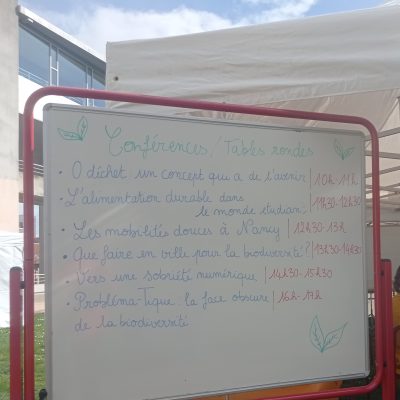 Conférences / Tables rondes
• 0 déchet un concept qui a de l'avenir | 10h-11h
• L'alimentation durable dans
le monde étudiant | 11h30-12h30
• Les mobilités douces à Nancy | 12h30-13h
• Que faire en ville pour la biodiversité ? | 13h30-14h30
• Vers une sobriété numérique | 14h30-15h30
• Probléma-Tique : la face obscure | 16h-17h
de la biodiversité